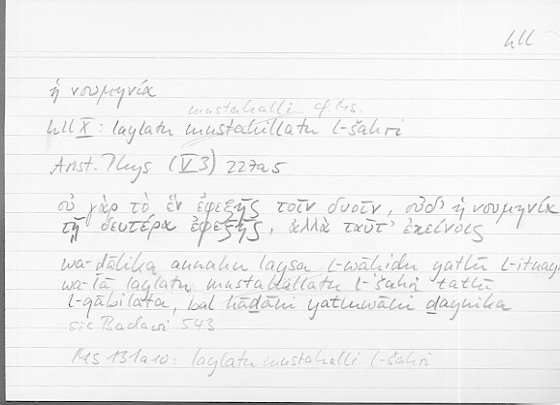 hll
ἡ νουμηνία
mustahalli cf. Ms.
hll X: laylatu mustahillatu l-šahri
Arist. Phys (V 3) 227a5
οὐ γὰρ τὸ ἓν ἐφεξῆς τοῖν δυοῖν, οὐδ' ἡ νουμηνία
τῇ δευτέρᾳ ἐφεξῆς, ἀλλὰ ταῦτ' ἐκείνοις
wa-ḏālika annahu laysa l-wāḥidu yatlū l-iṯnay
wa-lā laylatu mustahallatu l-šahri tatlū
l-qābilata, bal hāḏāni yatluwāni ḏaynika
sic Badawi 543
Ms 131a10: laylatu mustahalli l-šahri